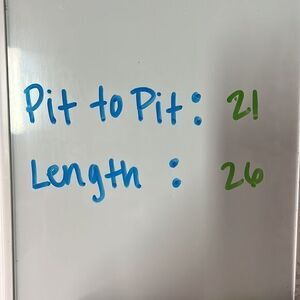 Pit to Pit: 21
Length : 26